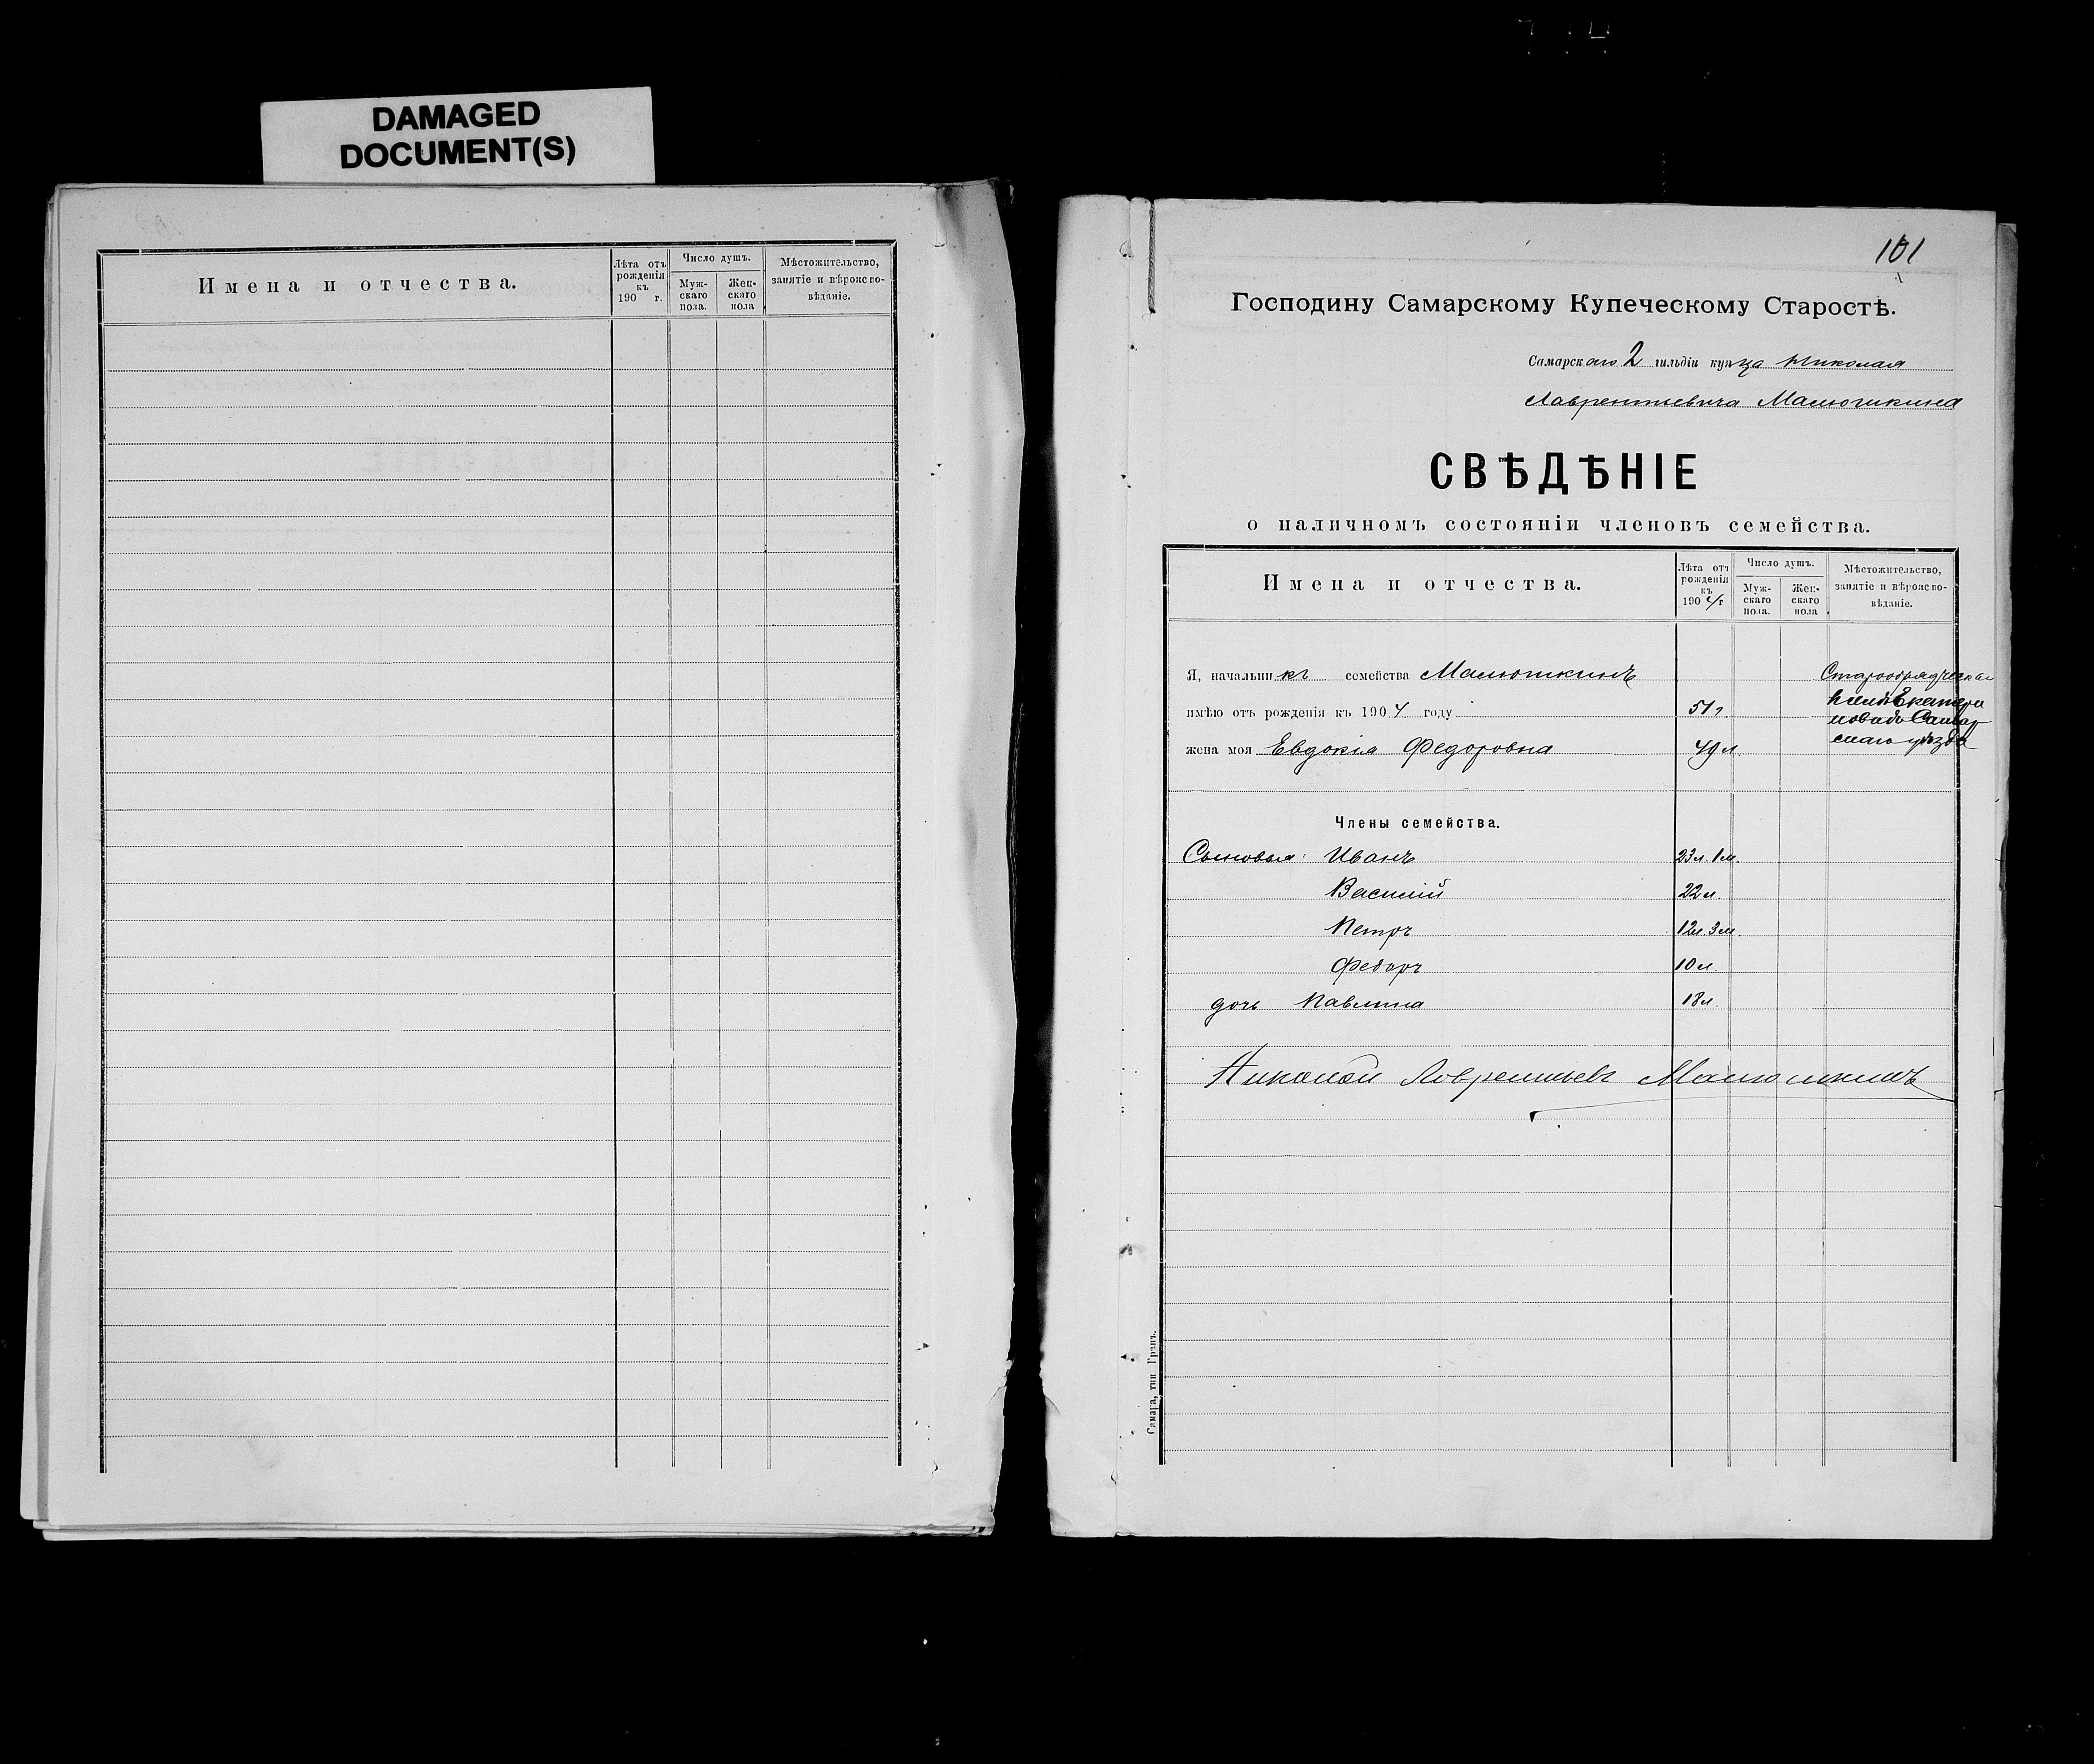 DAMAGED
DOCUMENT(S)
Имена и отчества.
Лѣта отъ рожденія къ 190 г.
Число душъ.
Муж-скаго пола.
Жен-скаго пола
Мѣстожительство, занятіе и вѣроиспо-вѣданіе.
101
Господину Самарскому Купеческому Старостѣ.
Самарскаго 2 гильдіи купца Николая
Лаврентьевича Малюшкина
СВѢДѢНІЕ
о наличномъ состояніи членовъ семейства.
Имена и отчества.
Лѣта отъ рожденія къ 1904 г
Число душъ.
Муж-скаго пола.
Жен-скаго пола
Мѣстожительство, занятіе и вѣроиспо-вѣданіе.
Я, начальникъ семейства Малюшкинъ
Старообрядческая
имѣю отъ рожденія къ 1904 году 51 г
Екатери
новка Самар
жена моя Евдокія Федоровна 49 л
скаго уѣзда
Члены семейства.
Сыновья: Иванъ 23 л. 1 м.
Василій 22 л.
Петръ 12 л. 3 м.
Федоръ 10 л.
дочь Павлина 18 л.
Николай Лаврентьевъ Малюшкинъ
Самара, тип Гранъ.